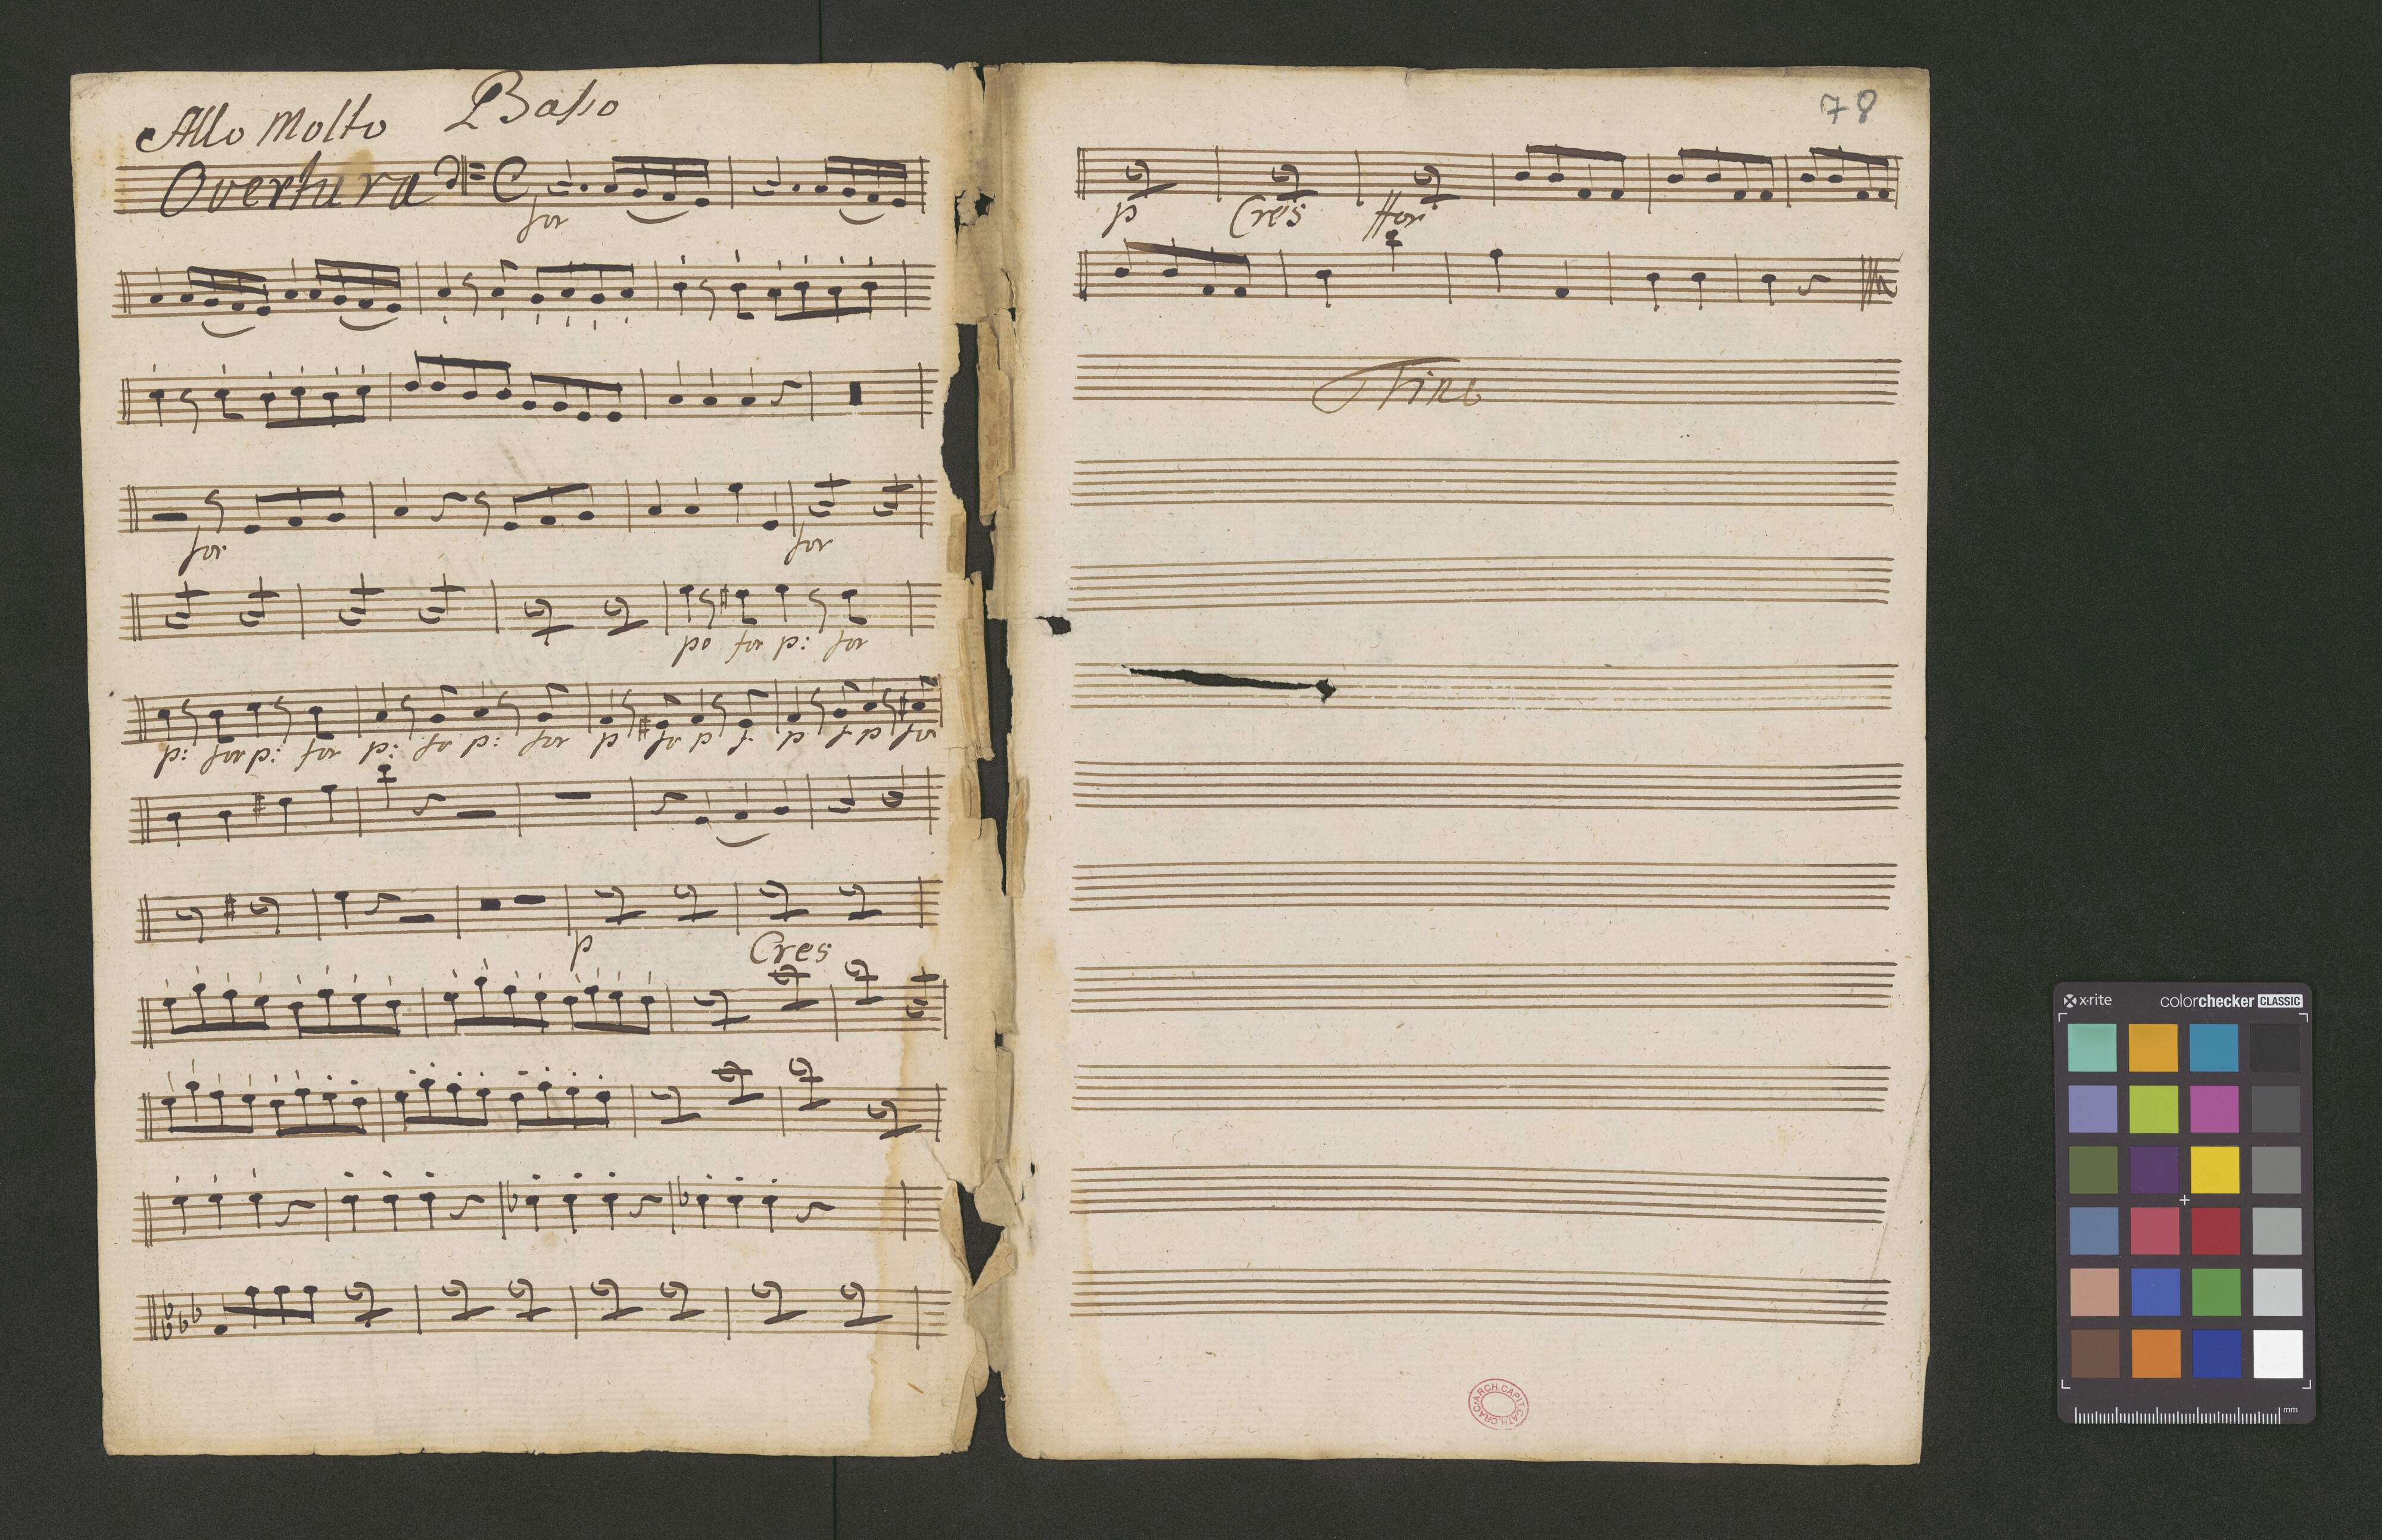 Allo Molto Basso
Overtura
for
for. for
po for p: for
p: for p: for p: fo p: for p fo p f. p f p for
p Cres
78
p Cres ffor
Fine
ARCH. CAPIT. CATH. CRAC.
x-rite colorchecker CLASSIC
mm